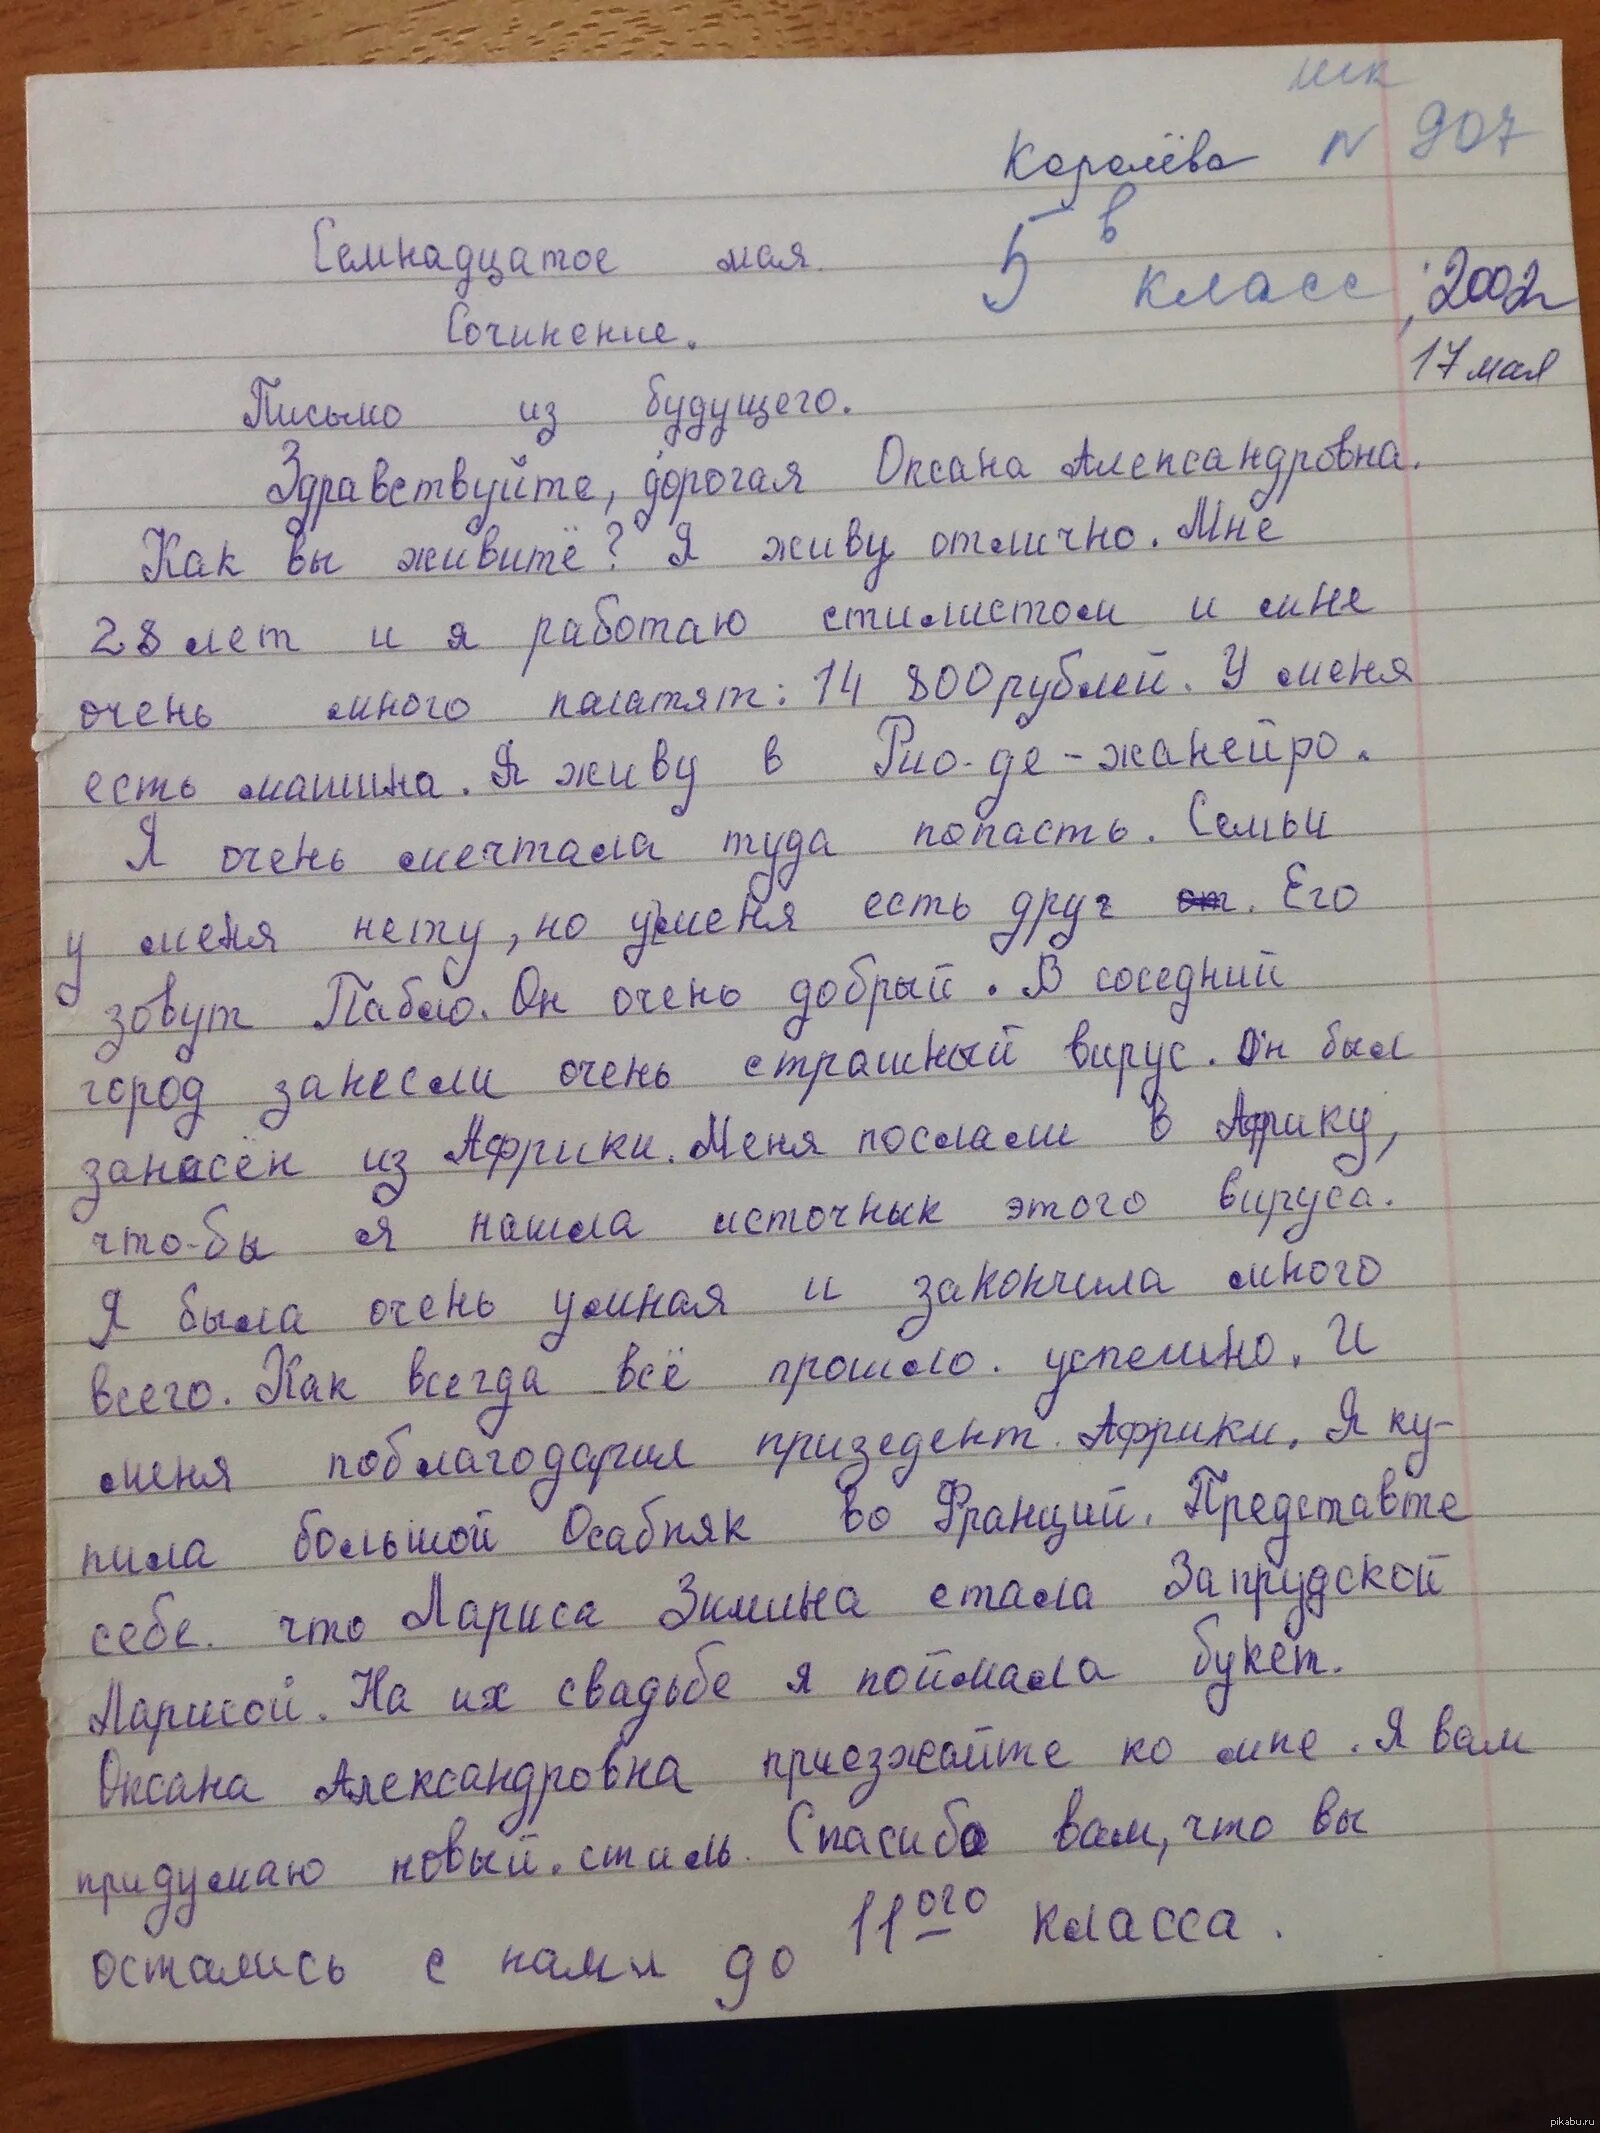 шк
Королёва № 907
Семнадцатое мая. 5 в класс, 2002г
Сочинение. 17 мая
Письмо из будущего.
Здравствуйте, дорогая Оксана Александровна.
Как вы живитё? Я живу отлично. Мне
28 лет и я работаю стилистом и мне
очень много палатят: 14 800 рублей. У меня
есть машина. Я живу в Рио-де-жанейро.
Я очень мечтала туда попасть. Семьи
у меня нету, но у меня есть друг от. Его
зовут Пабло. Он очень добрый. В соседний
город занесли очень страшный вирус. Он был
занасён из Африки. Меня послали в Африку,
что-бы я нашла источнык этого вируса.
Я была очень умная и закончила много
всего. Как всегда всё прошло. успешно. И
меня поблагодарил призедент. Африки. Я ку-
пила большой Осабняк во Франций. Представте
себе. что Лариса Зимина стала Запрудской
Ларисой. На их свадьбе я поймала букет.
Оксана Александровна приезжайте ко мне. Я вам
придумаю новый. стиль. Спасибо вам, что вы
остались с нами до 11ого класса.
pikabu.ru